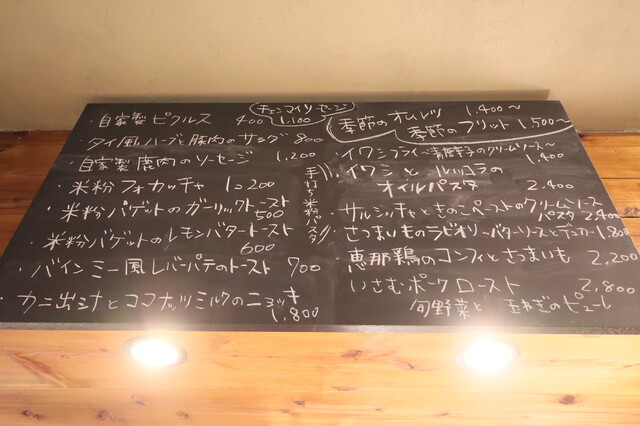 ・自家製ピクルス 400
チェンマイソーセージ 1.100
・タイ風ハーブと豚肉のサラダ 800
・自家製鹿肉のソーセージ 1.200
・米粉フォカッチャ 1コ200
・米粉バゲットのガーリックトースト
500
・米粉バゲットのレモンバタートースト
600
・バインミー風レバーパテのトースト 700
・カニ出汁とココナッツミルクのニョッキ
1.800
手打ち米粉パスタ
季節のオムレツ 1.400〜
季節のフリット 1.500〜
・イワシフライ〜青唐辛子のクリームソース〜
1.400
・イワシとルッコラの
オイルパスタ 2.400
・サルシッチャときのこペーストのクリームソース
パスタ 2.400
・さつまいものラビオリ〜バターソースとデュカ〜 1.800
・恵那鶏のコンフィとさつまいも 2,200
・いさむポークロースト 2.800
旬野菜と 玉ねぎのピューレ